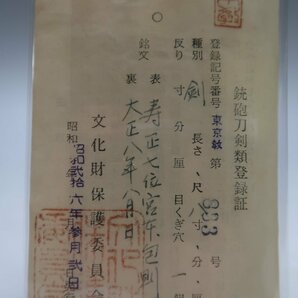 銃砲刀剣類登録証
登録記号番号 東京教 第 833 号
種別 剣 長さ 尺 八寸 分 厘
反り 寸 分 厘 目くぎ穴 一 個
銘文 表 寿正七位宮本包則
裏 大正八年八月日
昭和 昭和弐拾六年参月弐日
文化財保護委員会